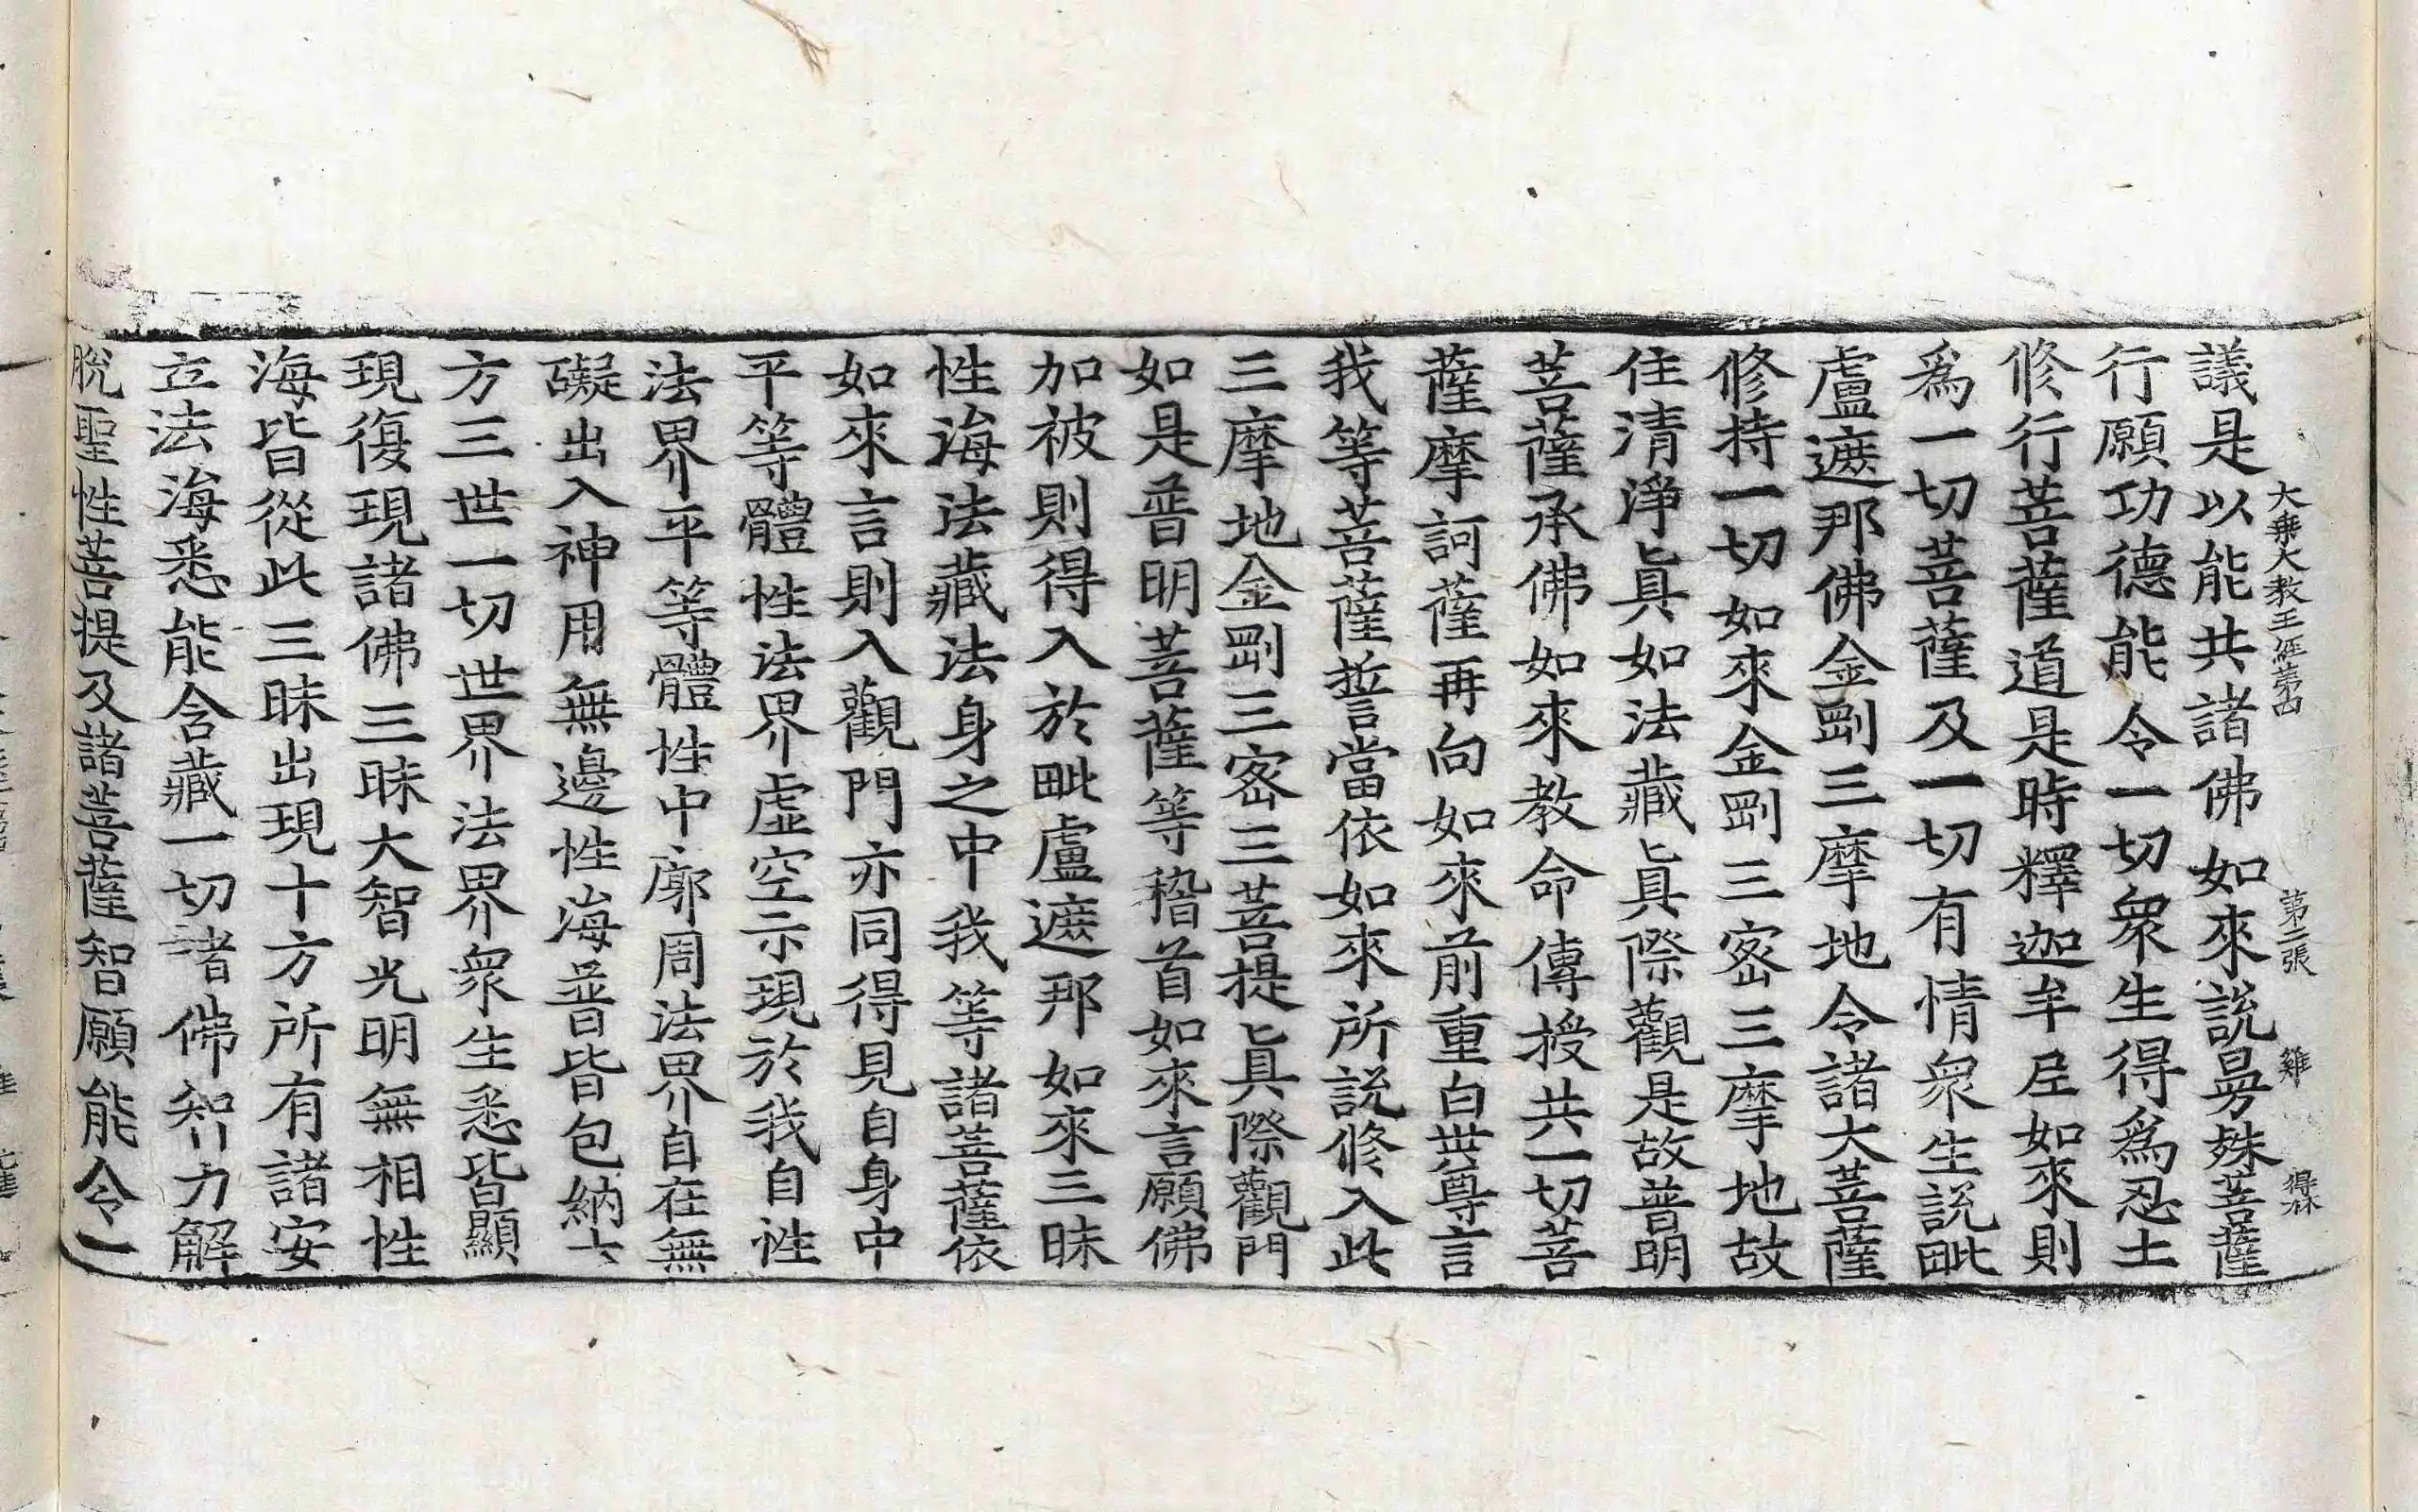 大乗大教王經第四 第二張 雞 得林
議是以能共諸佛如來說昜殊菩薩
行願功德能令一切衆生得爲忍土
修行菩薩道是時釋迦牟𡰱如來則
爲一切菩薩及一切有情衆生說毗
盧遮那佛金剛三摩地令諸大菩薩
修持一切如來金剛三密三摩地故
住清淨眞如法藏眞際觀是故普明
菩薩承佛如來教命傳授共一切菩
薩摩訶薩再向如來前重白世尊言
我等菩薩誓當依如來所說修入此
三摩地金剛三密三菩提眞際觀門
如是普明菩薩等稽首如來言願佛
加被則得入於毗盧遮那如來三昧
性海法藏法身之中我等諸菩薩依
如來言則入觀門亦同得見自身中
平等體性法界虛空示現於我自性
法界平等體性中廓周法界自在無
礙出入神用無邊性海普皆包納六
方三世一切世界法界衆生悉皆顯
現復現諸佛三昧大智光明無相性
海皆從此三昧出現十方所有諸安
立法海悉能含藏一切諸佛智力解
脫聖性菩提及諸菩薩智願能令一